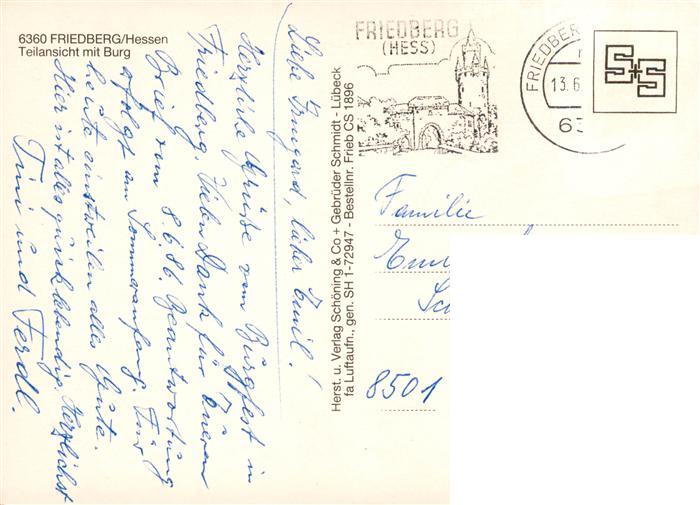 6360 FRIEDBERG/Hessen
Teilansicht mit Burg
Liebe Irmgard, lieber Emil!
Herzliche Grüße vom Burgfest in
Friedberg. Vielen Dank für Eueren
Brief vom 8.6.86. Beantwortung
erfolgt am Sommeranfang. Für
heute einstweilen alles Gute.
Hier ist alles quicklebendig. Herzlichst
Tini und Ferdl.
Herst. u. Verlag Schöning & Co + Gebrüder Schmidt - Lübeck
fa Luftaufn., gen. SH 1-72947 - Bestellnr. Frieb CS 1896
FRIEDBERG
(HESS)
FRIEDBER
13.6.
63
S+S
Familie
8501